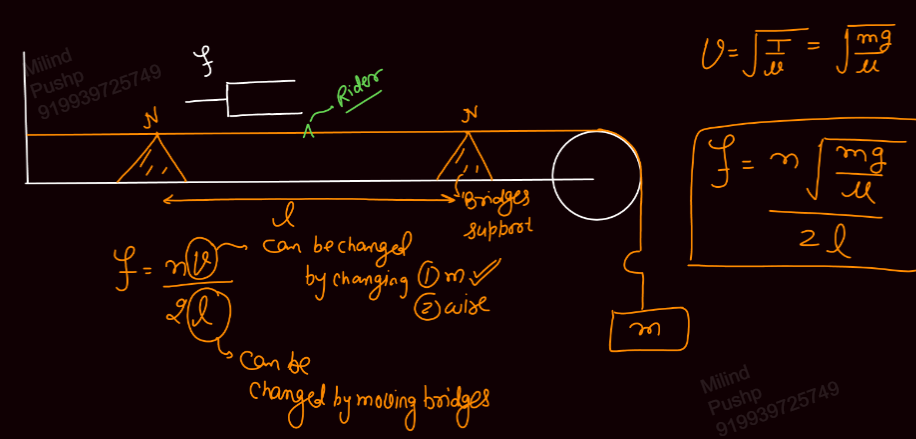 Milind
Pushp
919939725749
f
Rider
N
N
v = √(T/μ) = √(mg/μ)
f = n√(mg/μ) / 2l
l
Bridges
support
f = nv / 2l
can be changed
by changing ① m ✓
② wire
can be
changed by moving bridges
m
Milind
Pushp
919939725749